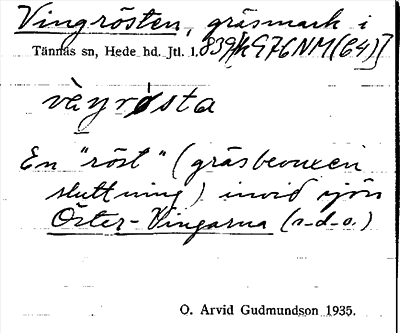 Vingrösten, gräsmark i
Tännäs sn, Hede hd. Jtl. l.
vèŋrøsta
En "röst" (gräsbevuxen
sluttning) invid sjön
Öster-Vingarna (n-d-o.)
O. Arvid Gudmundson 1935.